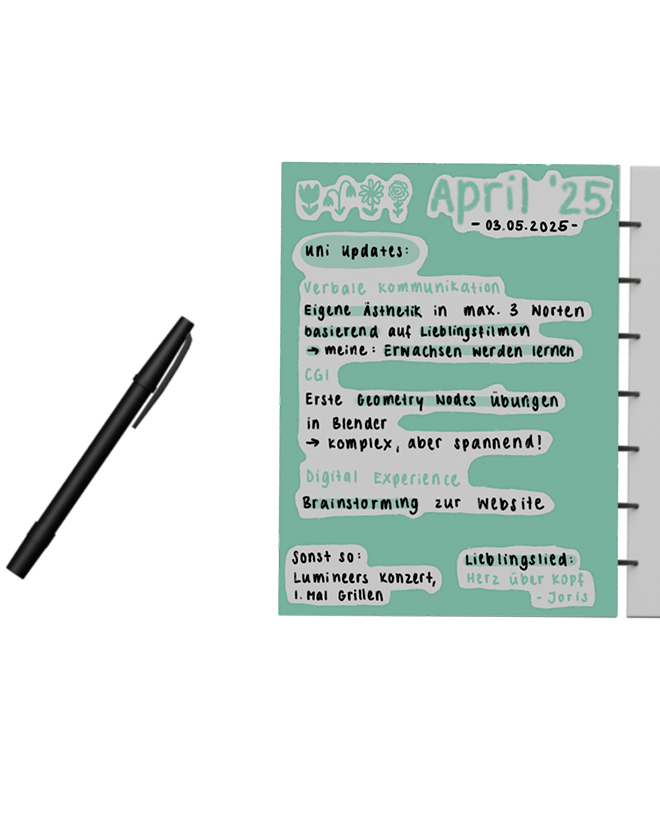 April '25
- 03.05.2025-
uni updates:
Verbale Kommunikation
Eigene Ästhetik in max. 3 Worten
basierend auf Lieblingsfilmen
→ meine: Erwachsen werden lernen
CGI
Erste Geometry Nodes Übungen
in Blender
→ komplex, aber spannend!
Digital Experience
Brainstorming zur Website
Sonst so:
Lumineers Konzert,
1. Mai Grillen
Lieblingslied:
Herz über Kopf
- Joris